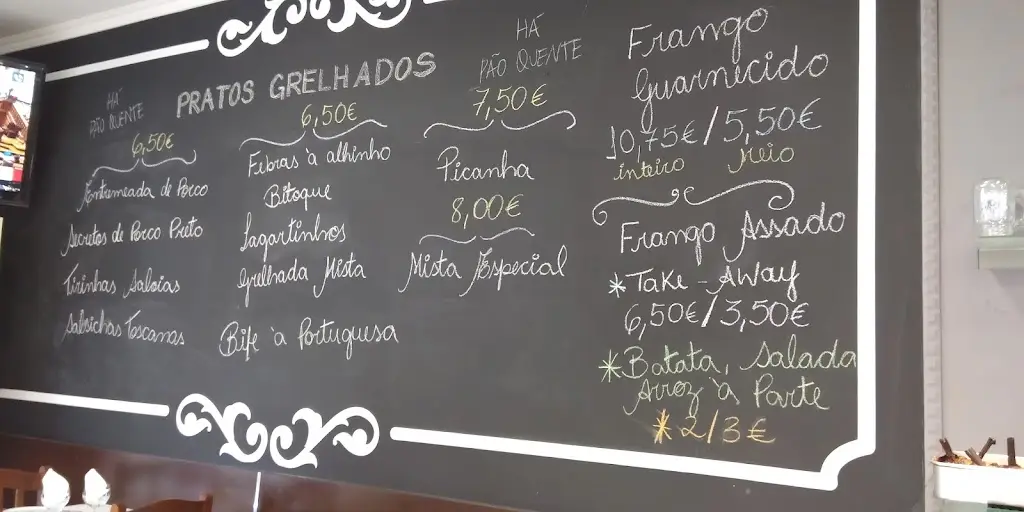 PRATOS GRELHADOS
HÁ
PÃO QUENTE
6,50€
Entremeada de Porco
Secretos de Porco Preto
Tirinhas Saloias
Salsichas Toscanas
6,50€
Febras à alhinho
Bitoque
Lagartinhos
Grelhada Mista
Bife à Portuguesa
HÁ
PÃO QUENTE
7,50€
Picanha
8,00€
Mista Especial
Frango
Guarnecido
10,75€/5,50€
inteiro meio
Frango Assado
*TAKE-AWAY
6,50€/3,50€
*Batata, Salada
Arroz à Parte
*2/3€